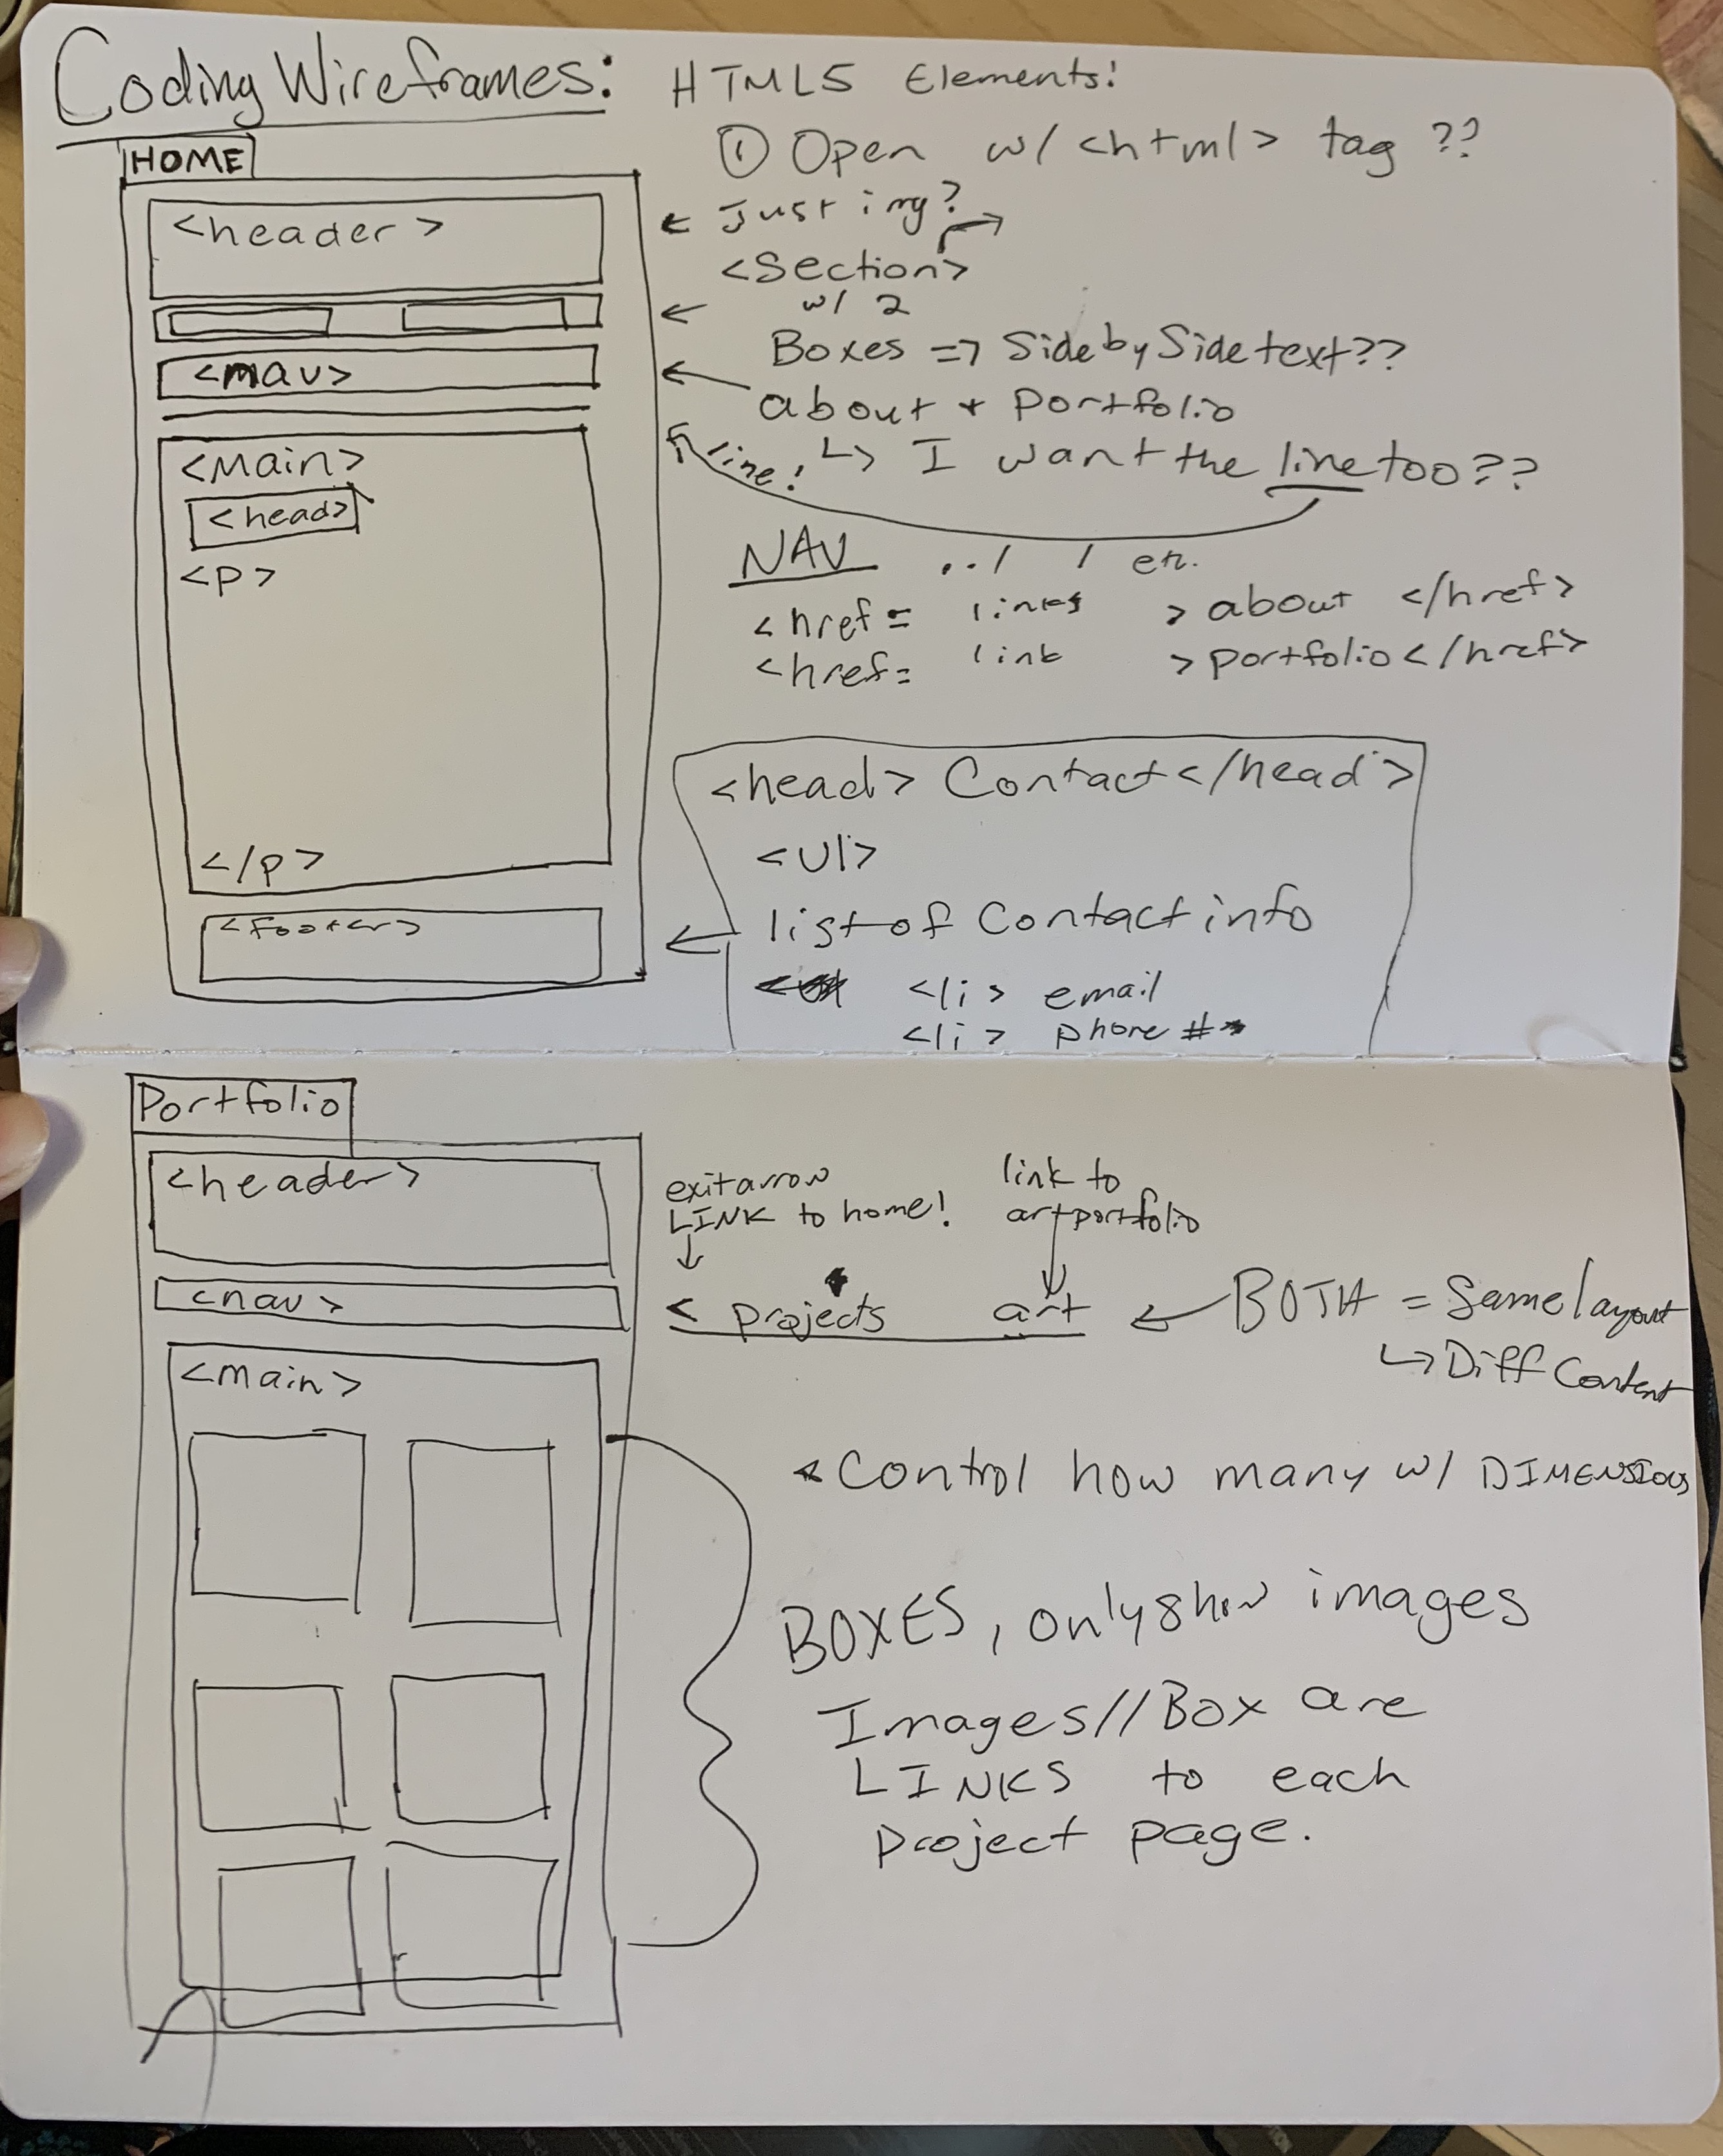 Coding Wireframes:
HTML5 Elements!
① Open w/ <html> tag ??
HOME
<header>
← Just img?
<Section>
w/ 2
←
Boxes => Side by Side text??
<nav>
← about + Portfolio
line! ↳ I want the line too??
<Main>
<head>
<p>
</p>
<footer>
NAV ../ / etc.
<href= links > about </href>
<href= link > portfolio </href>
<head> Contact </head>
<Ul>
← list of Contact info
<li> email
<li> phone #
Portfolio
<header>
exit arrow
LINK to home!
link to
art portfolio
<nav>
< projects art ← BOTH = Same layout
↳ Diff Content
<main>
Control how many w/ DIMENSIONS
BOXES, only show images
Images//Box are
LINKS to each
Project page.